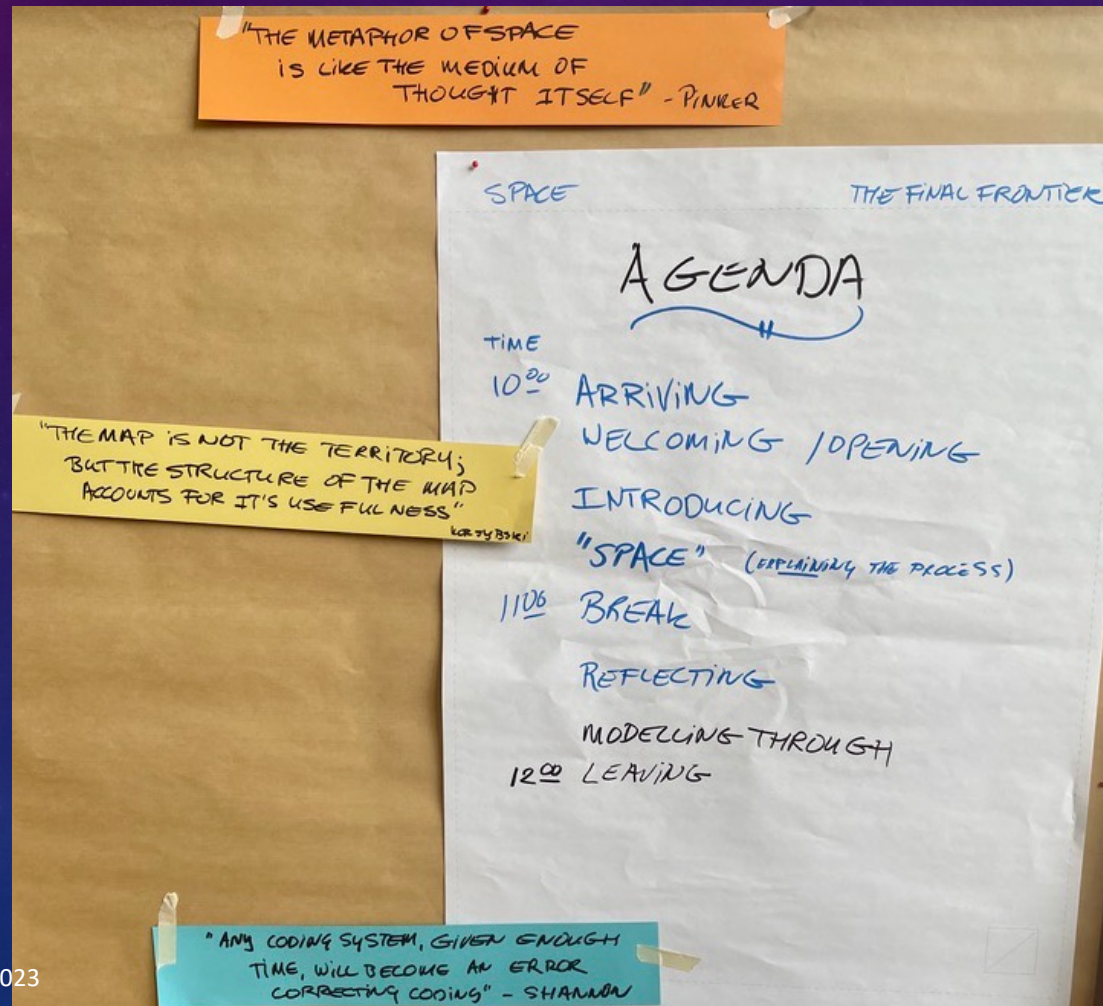 "THE METAPHOR OF SPACE
IS LIKE THE MEDIUM OF
THOUGHT ITSELF" - PINKER
SPACE THE FINAL FRONTIER
AGENDA
TIME
10⁰⁰ ARRIVING
WELCOMING / OPENING
INTRODUCING
"SPACE" (EXPLAINING THE PROCESS)
11⁰⁶ BREAK
REFLECTING
MODELLING THROUGH
12⁰⁰ LEAVING
"THE MAP IS NOT THE TERRITORY;
BUT THE STRUCTURE OF THE MAP
ACCOUNTS FOR IT'S USEFULNESS"
KORZYBSKI
"ANY CODING SYSTEM, GIVEN ENOUGH
TIME, WILL BECOME AN ERROR
CORRECTING CODING" - SHANNON
023